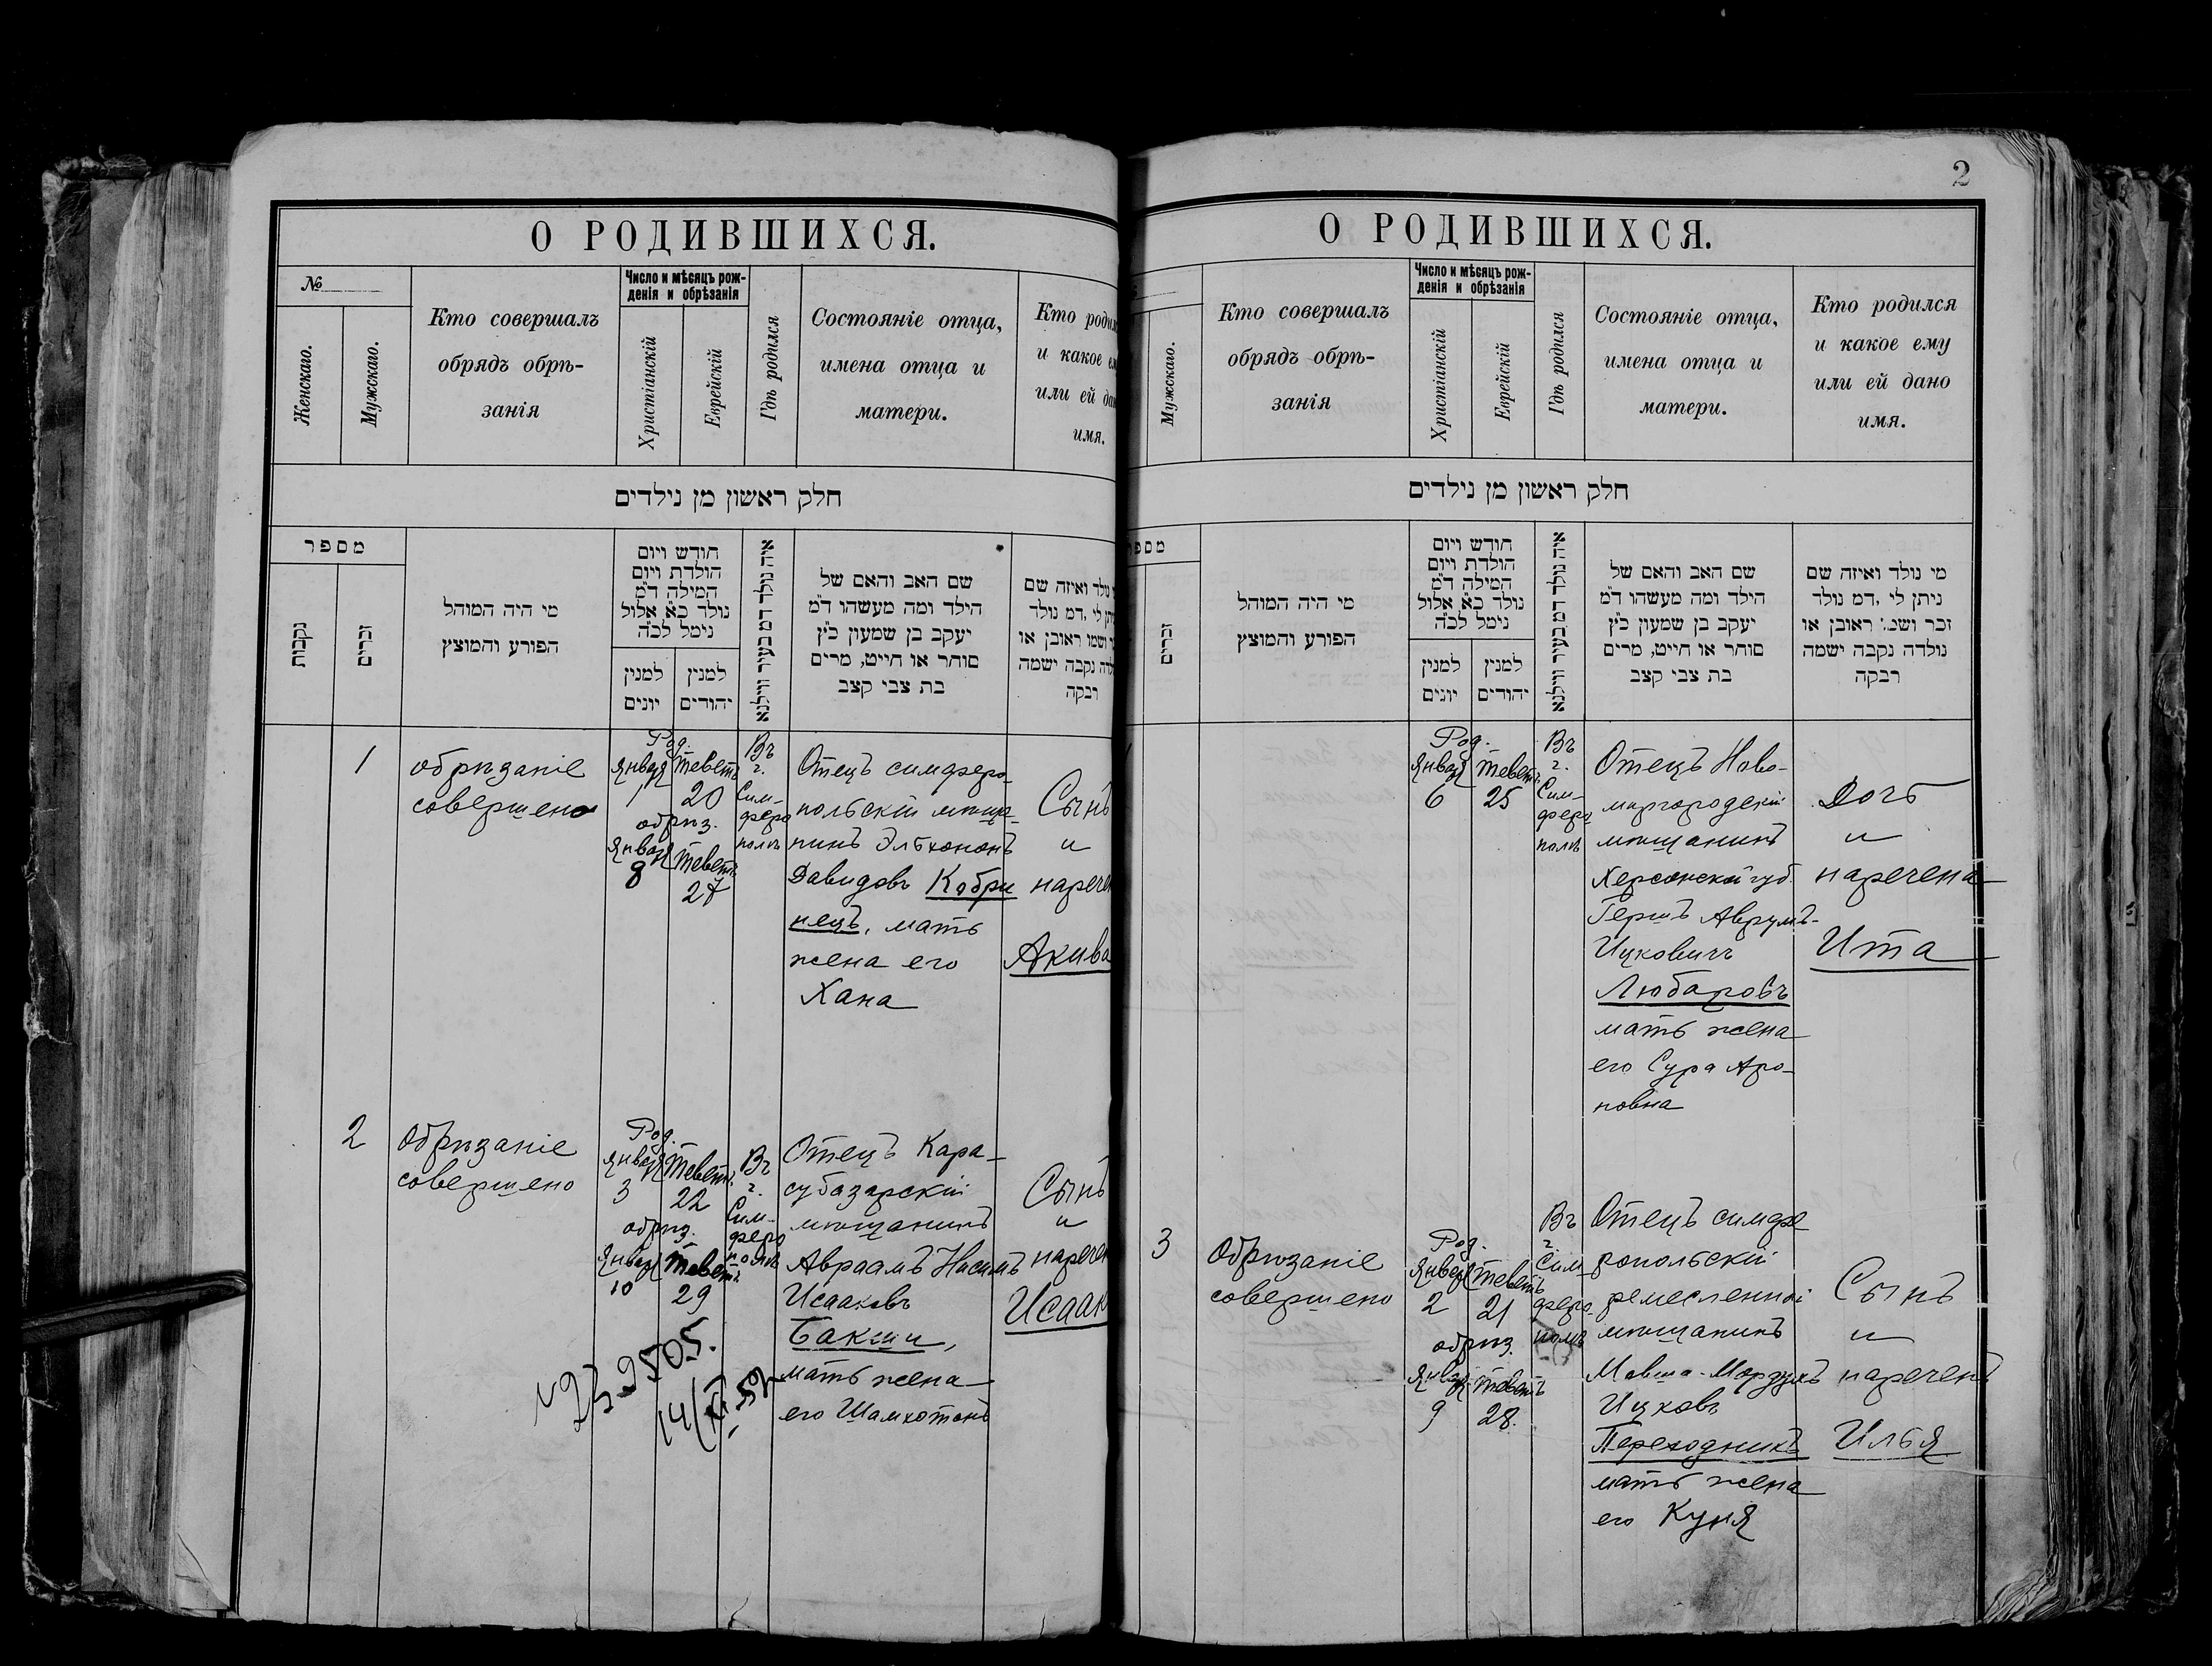 О РОДИВШИХСЯ.
№
Женскаго.
Мужскаго.
Кто совершалъ
обрядъ обрѣ-
занія
Число и мѣсяцъ рож-
денія и обрѣзанія
Христіанскій
Еврейскій
Гдѣ родился
Состояніе отца,
имена отца и
матери.
Кто роди
и какое е
или ей да
имя.
חלק ראשון מן נילדים
מספר
נקבות
זכרים
מי היה המוהל
הפורע והמוצץ
חודש ויום
הולדת ויום
המילה ד״מ
נולד כ״א אלול
נימל לכ״ה
למנין
יונים
למנין
יהודים
איה נולד דמ בעיר ווילנא
שם האב והאם של
הילד ומה מעשהו ד״מ
יעקב בן שמעון כ״ץ
סוחר או חייט, מרים
בת צבי קצב
נולד ואיזה שם
לי, דמ נולד
ושמו ראובן או
נקבה ישמה
רבקה
1
обрѣзаніе
совершено
Род.
Января Тевета
1 20
обрѣз.
Января Тевета
8 27
Въ
г.
Сим-
феро
полѣ
Отецъ симферо-
польскій мѣща-
нинъ Эльхононъ
Давидовъ Кобри
нецъ, мать
жена его
Хана
Сынъ
и
нарече
Акива
2
Обрѣзаніе
совершено
Род.
Января Тевета
3 22
обрѣз.
Января Тевета
10 29
Въ
г.
Сим-
феро
полѣ
Отецъ Кара-
субазарскій
мѣщанинъ
Авраамъ Нисимъ
Исааковъ
Бакши,
мать жена
его
Сынъ
и
нарече
Исаак
2
О РОДИВШИХСЯ.
Мужскаго.
Кто совершалъ
обрядъ обрѣ-
занія
Число и мѣсяцъ рож-
денія и обрѣзанія
Христіанскій
Еврейскій
Гдѣ родился
Состояніе отца,
имена отца и
матери.
Кто родился
и какое ему
или ей дано
имя.
חלק ראשון מן נילדים
מספ
זכרים
מי היה המוהל
הפורע והמוצץ
חודש ויום
הולדת ויום
המילה ד״מ
נולד כ״א אלול
נימל לכ״ה
למנין
יונים
למנין
יהודים
איה נולד דמ בעיר ווילנא
שם האב והאם של
הילד ומה מעשהו ד״מ
יעקב בן שמעון כ״ץ
סוחר או חייט, מרים
בת צבי קצב
מי נולד ואיזה שם
ניתן לי, דמ נולד
זכר ושמ: ראובן או
נולדה נקבה ישמה
רבקה
Род.
Января Тевета
6 25
Въ
г.
Сим-
феро
полѣ
Отецъ Ново-
миргородскій
мѣщанинъ
Херсонской губ.
Гершъ Аврумъ-
Ицковичъ
Любаровъ
мать жена
его Сура Аро-
новна
Дочь
и
наречена
Ита
3
Обрѣзаніе
совершено
Род.
Января Тевета
2 21
обрѣз.
Января Тевета
9 28.
Въ
г.
Сим
феро-
полѣ
Отецъ симфе
ропольскій
ремесленной
мѣщанинъ
Мовша-Мордухъ
Ицковъ
Переходникъ
мать жена
его Куня
Сынъ
и
нареченъ
Илья